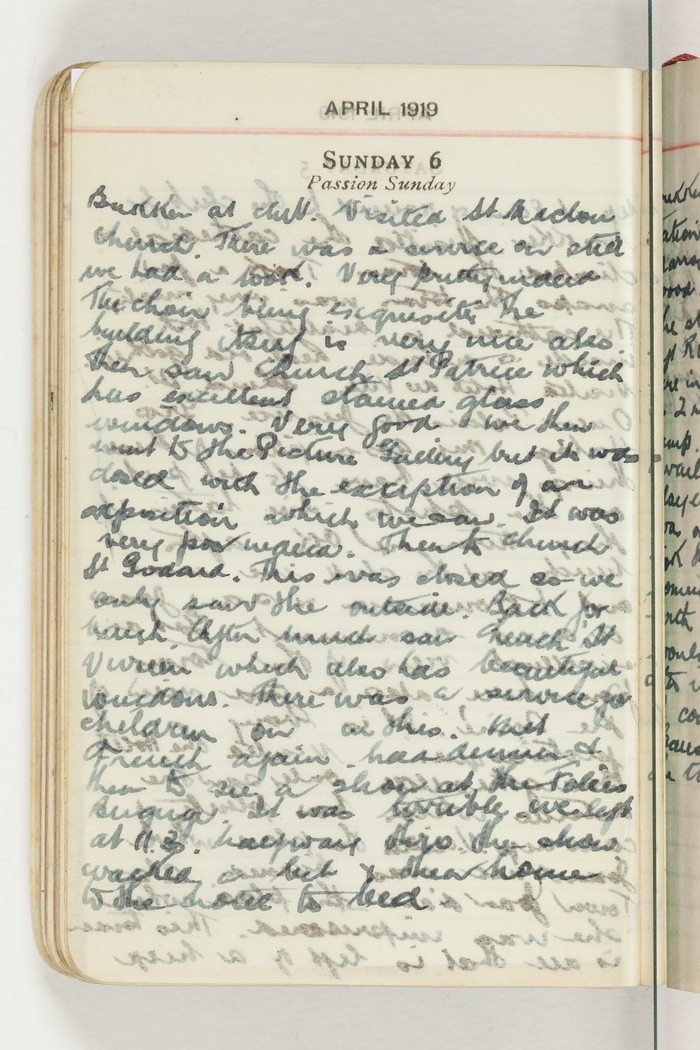 APRIL 1919
SUNDAY 6
Passion Sunday
at club. Visited St Maclou
church. There was a service on still
we had a look. Very pretty indeed
The choir being exquisite. The
building itself is very nice also.
Then saw church St Patrice which
has excellent stained glass
windows. Very good we then
went to the Picture Gallery but it was
closed with the exception of an
exposition which we saw. It was
very poor indeed. Then to church
St Godard. This was closed so we
only saw the outside. Back for
lunch. After lunch saw church St
Vivien which also has beautiful
windows. There was a service for
children on at this. Met
French again had dinner &
then to see a show at the Folies
It was terrible we left
at 11.3. halfway thro the show
walked a bit & then home
to the hotel to bed